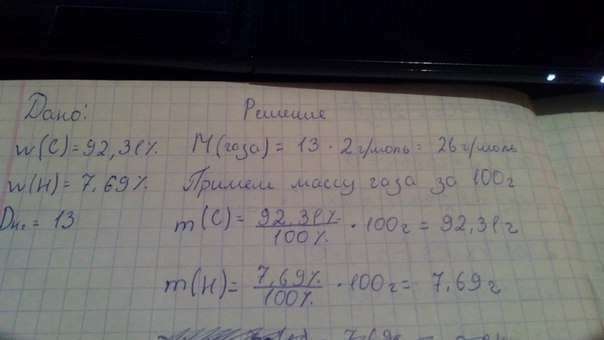 Дано: Решение
w(C)=92,31% M(газа) = 13 · 2г/моль = 26 г/моль
w(H)=7,69% Примем массу газа за 100г
DH₂ = 13 m(C)= 92,31%/100% · 100г = 92,31г
m(H)= 7,69%/100% · 100г = 7,69г